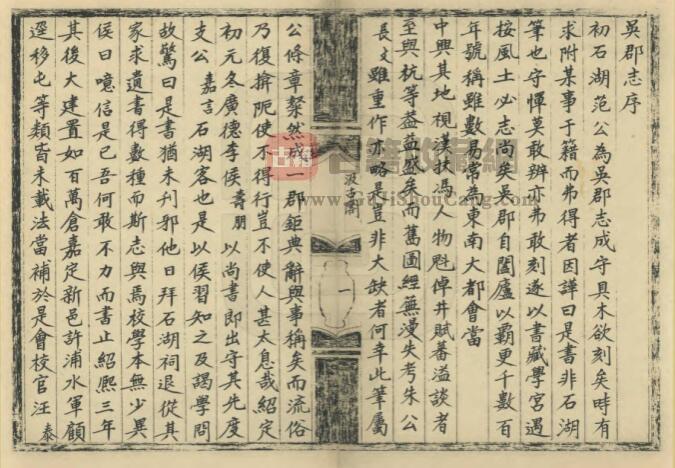 吳郡志序
初石湖范公為吳郡志成守具木欲刻矣時有
求附某事于籍而弗得者因譁曰是書非石湖
筆也守憚莫敢辨亦弗敢刻遂以書藏學宮遇
按風土必志尚矣吳郡自闔廬以霸更千數百
年號稱雖數易常為東南大都會當
中興其地視漢扶馮人物魁倬井賦蕃溢談者
至與杭等蓋益盛矣而舊圖經蕪漫失考朱公
長文雖重作亦略是豈非大缺者何幸此筆屬
汲古閣
一
公條章粲然成一郡鉅典辭與事稱矣而流俗
乃復揜阨使不得行豈不使人甚太息哉紹定
初元冬廣德李侯壽朋以尚書郎出守其先度
支公嘉言石湖客也是以侯習知之及謁學問
故驚曰是書猶未刋邪他日拜石湖祠退從其
家求遺書得數種而斯志與焉校學本無少異
侯曰噫信是已吾何敢不力而書止紹熙三年
其後大建置如百萬倉嘉定新邑許浦水軍顧
逕移屯等類皆未載法當補於是會校官汪泰
www.GuJiShouCang.com